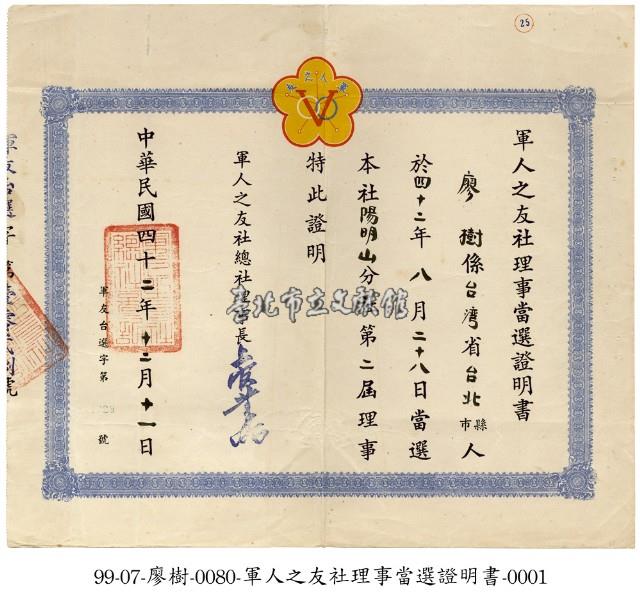 25
軍人之友社
軍人之友社理事當選證明書
廖樹係台湾省台北市縣人
於四十二年八月二十八日當選
本社陽明山分社第二屆理事
特此證明
軍人之友社總社理事長
中華民國四十二年十二月十一日
軍友台選字第 號
臺北市立文獻館
99-07-廖樹-0080-軍人之友社理事當選證明書-0001